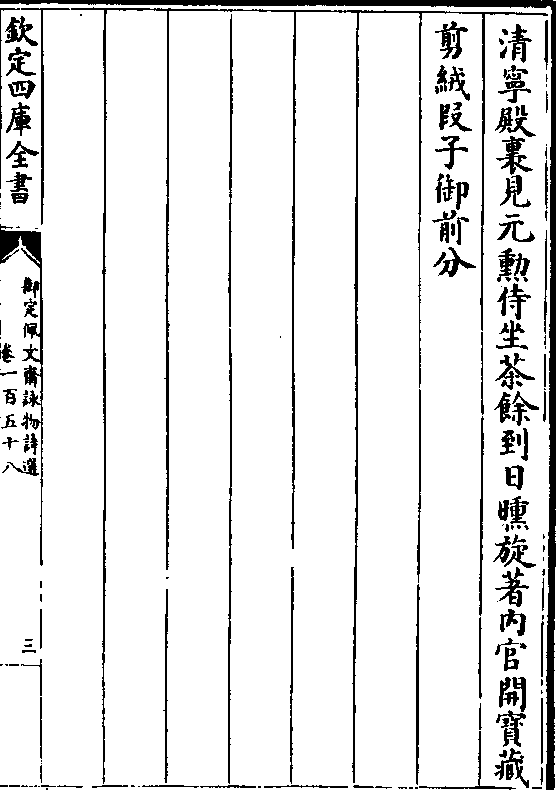 清寧殿裏見元勲侍坐茶餘到日曛旋著内官開寶藏
剪絨段子御前分
欽定四庫全書
御定佩文齋詠物詩選
卷一百五十八
三